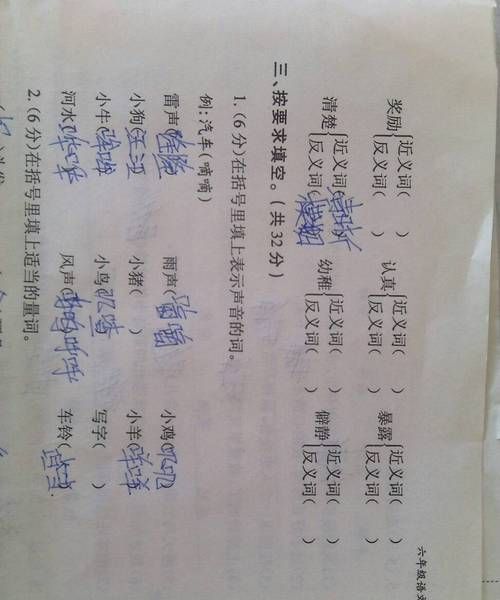 六年级语
奖励{近义词(　) 认真{近义词(　) 暴露{近义词(　)
反义词(　) 反义词(　) 反义词(　)
清楚{近义词(清晰) 幼稚{近义词(　) 僻静{近义词(　)
反义词(模糊) 反义词(　) 反义词(　)
三、按要求填空。(共32分)
1.(6分)在括号里填上表示声音的词。
例:汽车(嘀嘀)
雷声(隆隆) 雨声( 小鸡(叽叽)
小狗(汪汪) 小猪(　) 小羊(咩咩)
小牛( 小鸟(叽喳) 写字(　)
河水(哗哗) 风声( 车铃(
2.(6分)在括号里填上适当的量词。